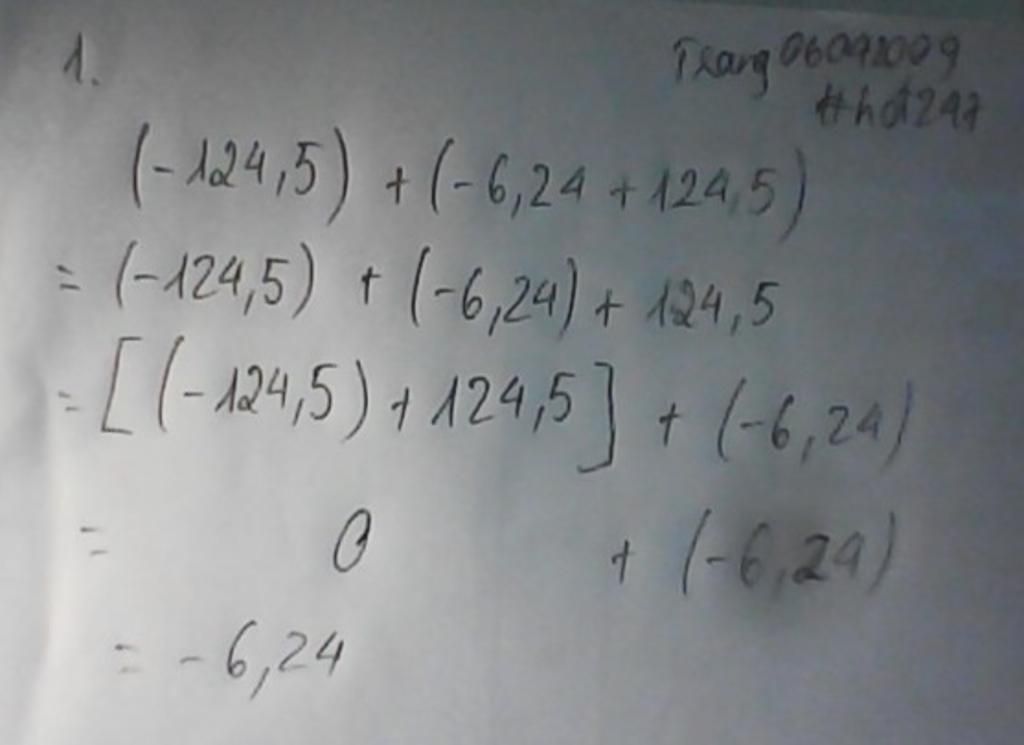 1.
Trang06092009
#hdt247
(-124,5) + (-6,24 + 124,5)
= (-124,5) + (-6,24) + 124,5
= [(-124,5) + 124,5] + (-6,24)
= 0 + (-6,24)
= -6,24